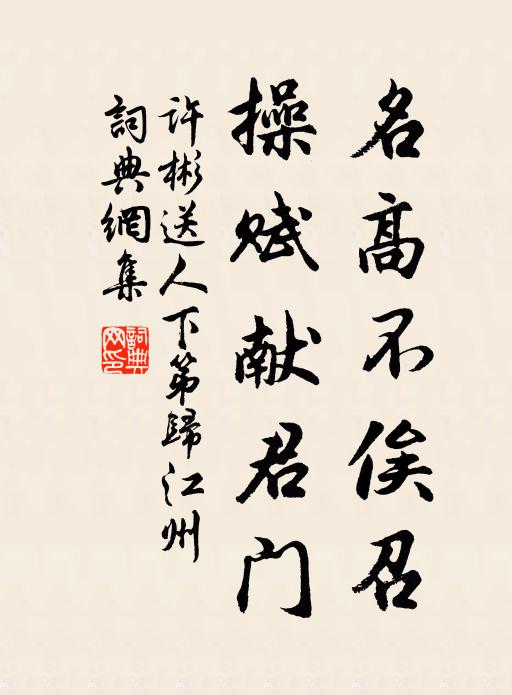 名高不俟召
操赋献君门
許彬送人下第歸江州
詞典網集
詞典
网印